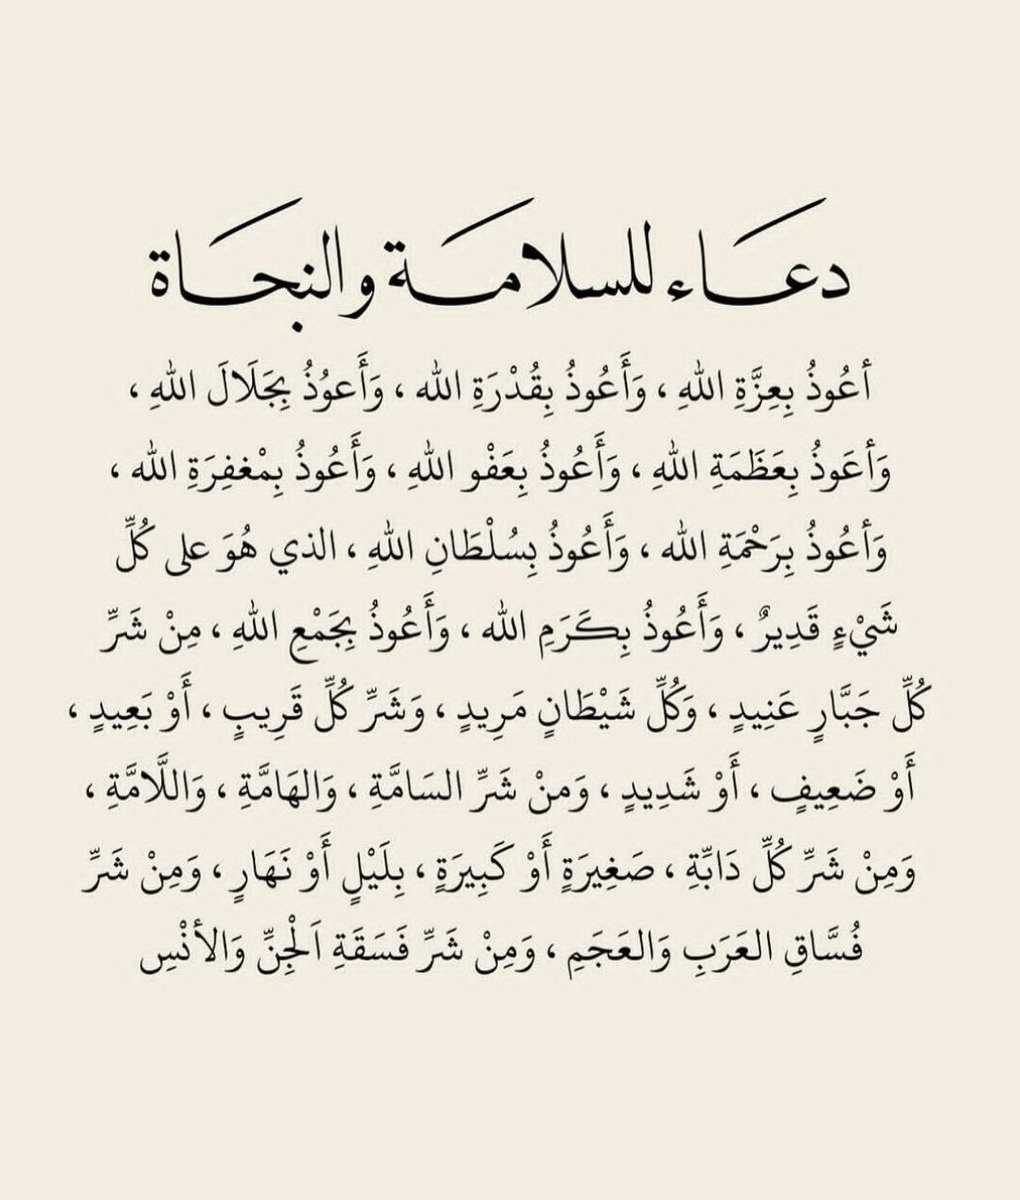 دعاء للسلامة والنجاة
أعُوذُ بِعِزَّةِ اللهِ ، وَأَعُوذُ بِقُدْرَةِ الله ، وَأَعوُذُ بِجَلَالَ اللهِ ،
وَأعَوذُ بِعَظَمَةِ اللهِ ، وَأَعُوذُ بِعَفْو اللهِ ، وَأَعُوذُ بِمْغفِرَةِ الله ،
وَأعُوذُ بِرَحْمَةِ الله ، وَأَعُوذُ بِسُلْطَانِ اللهِ ، الذي هُوَ على كُلِّ
شَيْءٍ قَدِيرٌ ، وَأَعُوذُ بِكَرَمِ الله ، وَأَعُوذُ بِجَمْعِ اللهِ ، مِنْ شَرِّ
كُلِّ جَبَّارٍ عَنِيدٍ ، وَكُلِّ شَيْطَانٍ مَرِيدٍ ، وَشَرِّ كُلِّ قَرِيبٍ ، أَوْ بَعِيدٍ ،
أَوْ ضَعِيفٍ ، أَوْ شَدِيدٍ ، وَمنْ شَرِّ السَامَّةِ ، وَالهَامَّةِ ، وَاللَّامَّةِ ،
وَمِنْ شَرِّ كُلِّ دَابِّةِ ، صَغِيرَةٍ أَوْ كَبِيرَةٍ ، بِلَيْلٍ أَوْ نَهَارٍ ، وَمِنْ شَرِّ
فُسَّاقِ العَرَبِ وَالعَجَمِ ، وَمِنْ شَرِّ فَسَقَةِ اَلْجِنِّ وَالأنْسِ